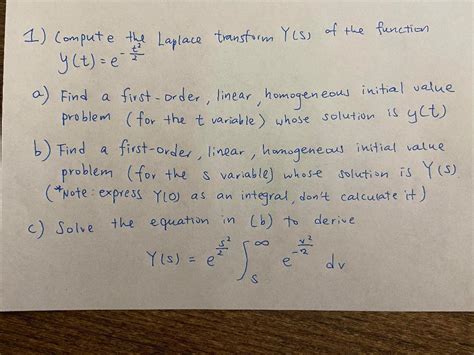 1) Compute the Laplace transform Y(s) of the function
y(t) = e^{-t²/2}
a) Find a first-order, linear, homogeneous initial value
problem (for the t variable) whose solution is y(t)
b) Find a first-order, linear, homogeneous initial value
problem (for the s variable) whose solution is Y(s)
(*Note: express Y(0) as an integral, don't calculate it)
c) Solve the equation in (b) to derive
Y(s) = e^{s²/2} ∫_s^∞ e^{-v²/2} dv